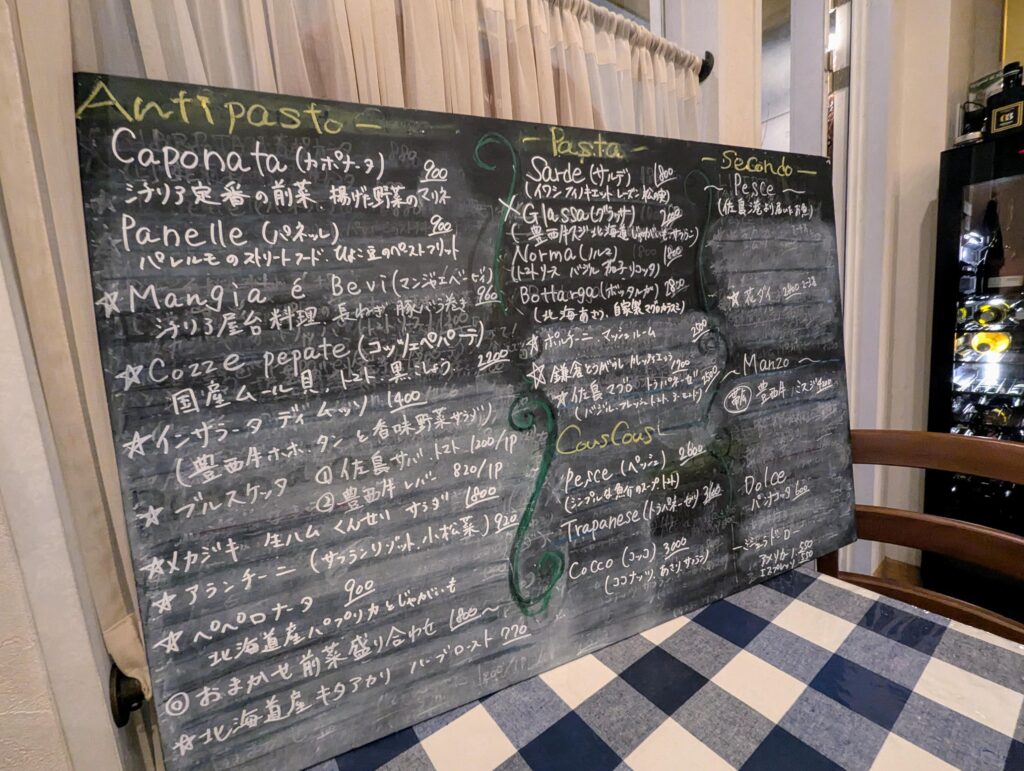 Antipasto
Caponata (カポナータ) 900
シチリア定番の前菜、揚げた野菜のマリネ
Panelle (パネッレ) 900
パレルモのストリートフード ひよこ豆のペーストフリット
☆Mangia é Bevi (マンジャエベービ) 960
シチリア屋台料理、長ねぎ、豚バラ巻き
☆Cozze pepate (コッツェペパーテ)
国産ムール貝、トマト、黒こしょう 2200
☆インサラータ ディ ムッソ 1400
(豊西牛ホホ、タンと香味野菜サラダ)
☆ブルスケッタ ①佐島サバ、トマト 1200/1P
②豊西牛レバー 820/1P
☆メカジキ 生ハム くんせい サラダ 1800
☆アランチーニ (サフランリゾット、小松菜) 920
☆ペペロナータ 900
北海道産パプリカとじゃがいも
◎おまかせ前菜盛り合わせ 1800〜
☆北海道産キタアカリ ハーブロースト 770
Pasta
Sarde (サルデ) 1800
(イワシ フィノキエット レーズン 松の実)
×Glassa (グラッサ)
(豊西牛スジ 北海道じゃがいも サフラン)
Norma (ノルマ) 1800
(トマトソース バジル 茄子 リコッタ)
Bottarga (ボッタルガ)
(北海道 自家製マグロカラスミ)
☆ポルチーニ、マッシュルーム
☆鎌倉
☆佐島マグロ トラパネーゼ
CousCous
Pesce (ペッシェ) 2600
(シンプルな魚介のスープ トマト)
Trapanese (トラパネーゼ)
Cocco (コッコ) 3000
(ココナッツ、あさり、サフラン)
Secondo
〜Pesce〜
(佐島港より届いたお魚)
☆花ダイ
〜Manzo〜
豊西牛 ミスジ
Dolce
パンナコッタ 600